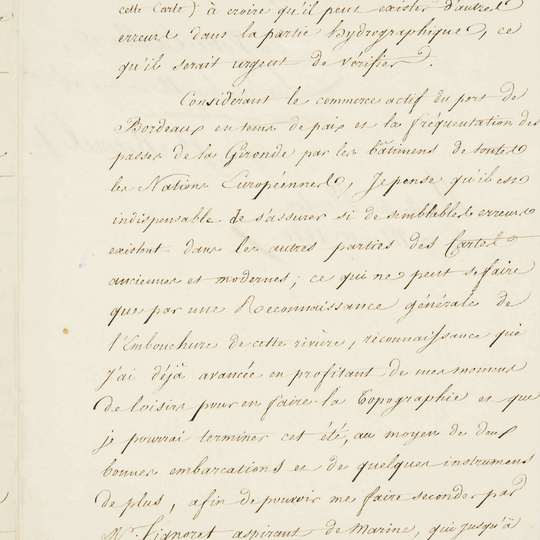 cette Carte) à croire qu'il peut exister d'autres
erreurs dans la partie hydrographique, ce
qu'il serait urgent de vérifier.
Considérant le commerce actif du port de
Bordeaux en tems de paix et la fréquentation des
passes de la Gironde par les bâtimens de toutes
les Nations Européennes, Je pense qu'il est
indispensable de s'assurer si de semblables erreurs
existent dans les autres parties des Cartes
anciennes et modernes; ce qui ne peut se faire
que par une Reconnaissance générale de
l'Embouchure de cette rivière, réconnaissance que
J'ai déjà avancée en profitant de mes momens
de loisirs pour en faire la Topographie et que
je pourrai terminer cet été, au moyen de deux
bonnes embarcations et de quelques instrumens
de plus, afin de pouvoir me faire seconder par
Mr. Lignoret aspirant de Marine, qui jusqu'à